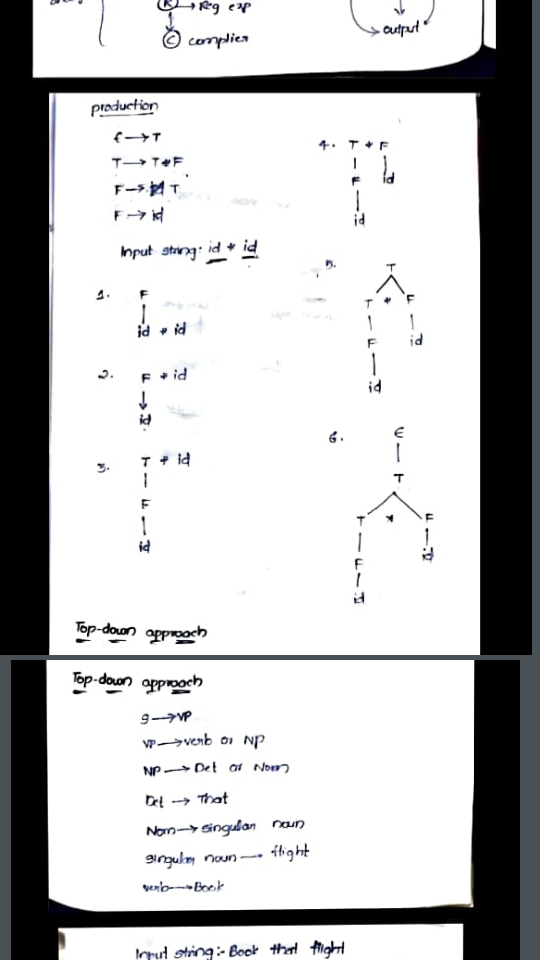 R → Reg exp
C complier
output
production
E → T
T → T * F
F → T
F → id
Input string: id * id
1. F
id * id
2. F * id
id
3. T * id
F
id
4. T * F
F id
id
5. T
T * F
F id
id
6. E
T
T * F
F id
id
Top-down approach
Top-down approach
S → VP
VP → verb or NP
NP → Det or Nom
Det → That
Nom → singular noun
singular noun → flight
verb → Book
Input string:- Book that flight